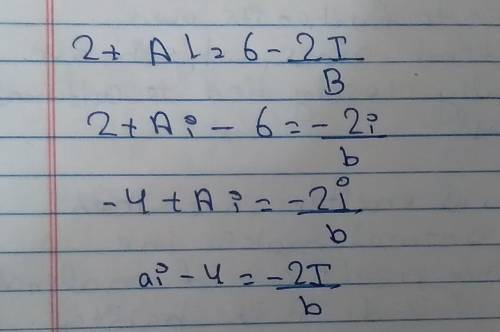 2 + A l = 6 - 2I/B
2 + A i - 6 = - 2i/b
- 4 + A i = - 2i/b
ai - 4 = - 2I/b